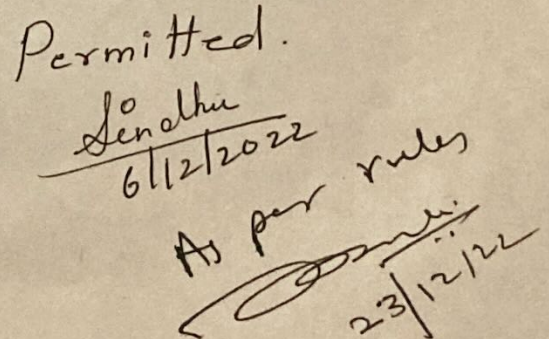 Permitted.
Sindhu
6/12/2022
As per rules
23/12/22